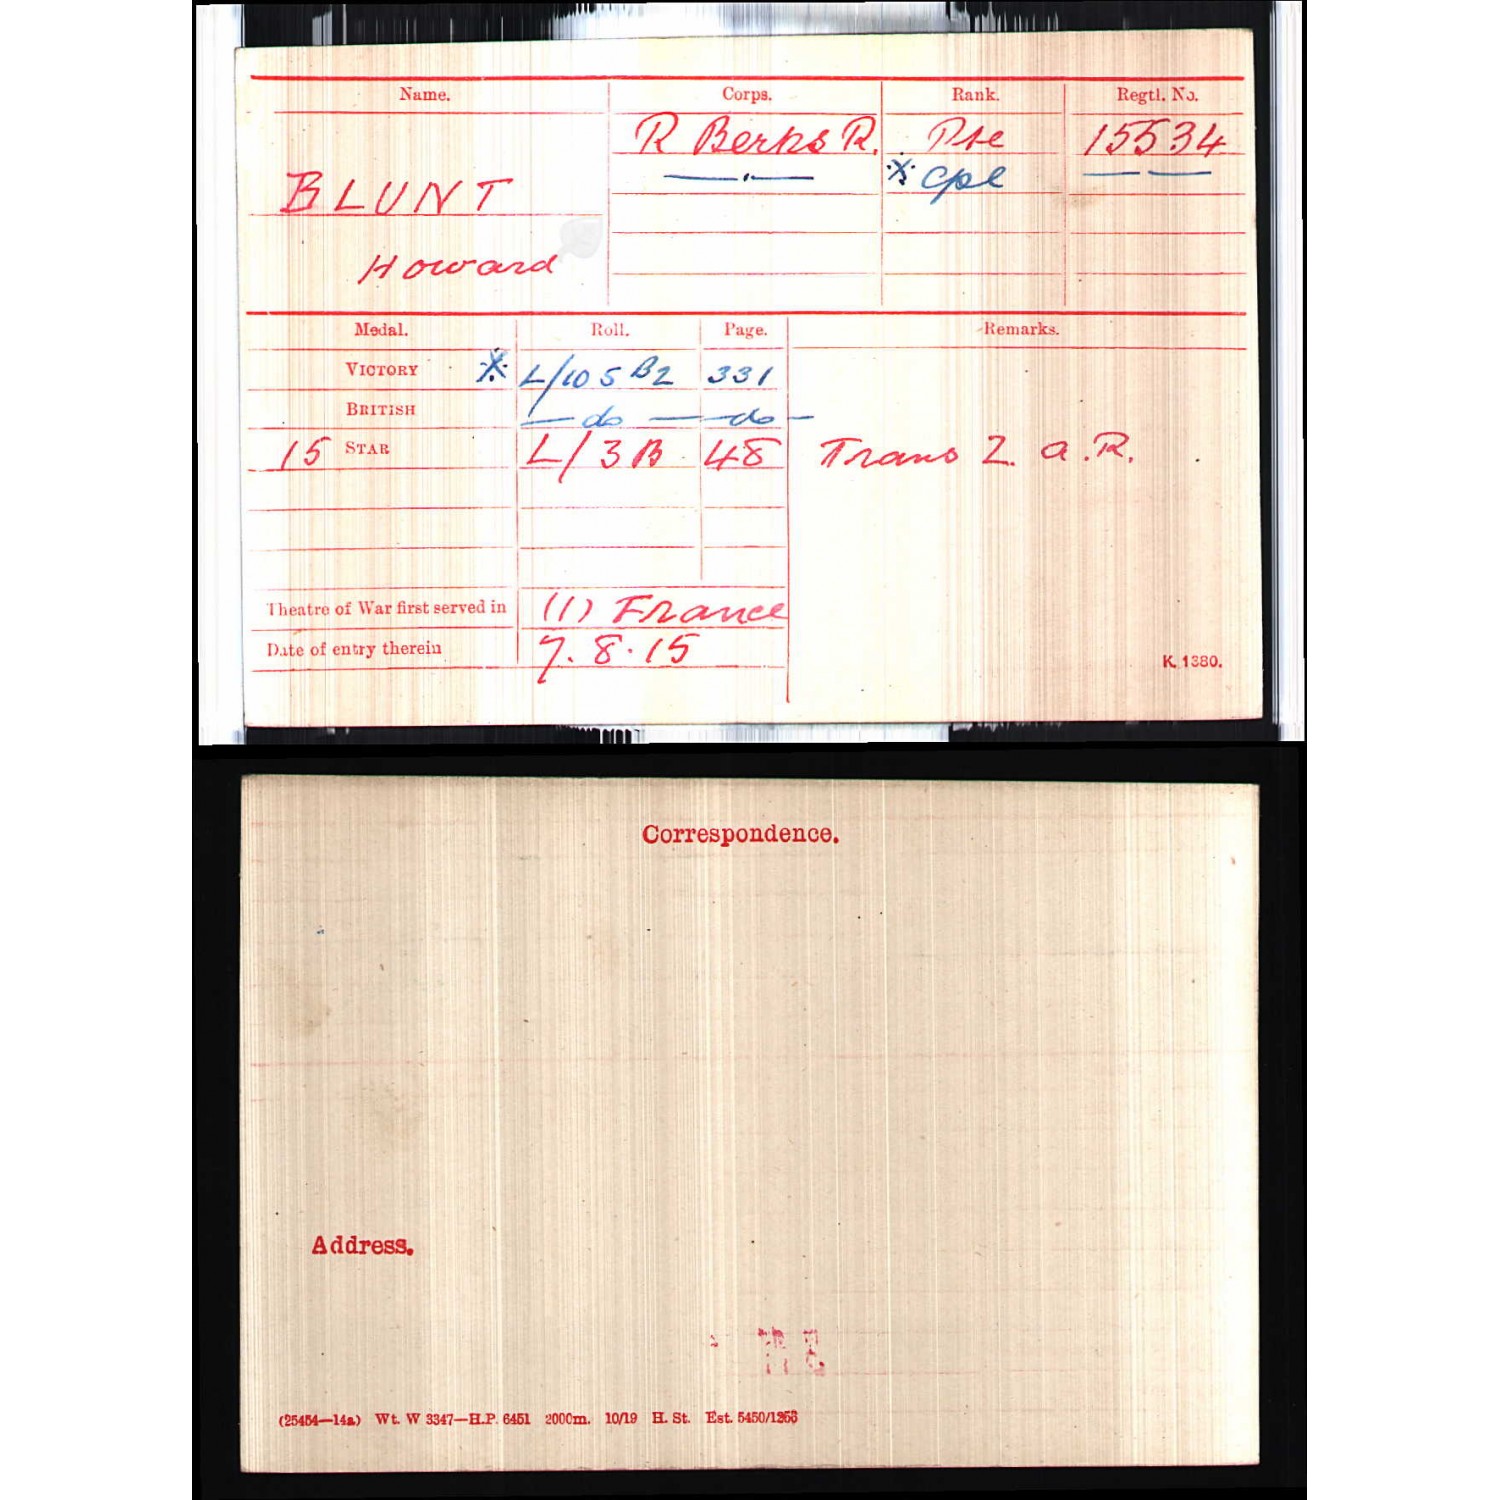 Name. Corps. Rank. Regtl. No.
R Berks R. Pte 15534
BLUNT —〃— ※ Cpl — —
Howard
Medal. Roll. Page. Remarks.
VICTORY ※ L/105 B2 331
BRITISH — do — — do —
15 STAR L/3B 48 Trans Z. a.R.
Theatre of War first served in (1) France
Date of entry therein 7.8.15
K. 1380.
Correspondence.
Address.
(25454—14a) Wt. W 3347—H.P. 6451 2000m. 10/19 H. St. Est. 5450/1253